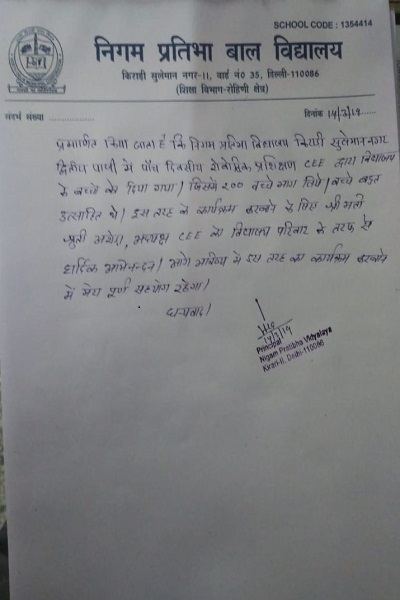 SCHOOL CODE : 1354414
निगम प्रतिभा बाल विद्यालय
किराड़ी सुलेमान नगर-II, वार्ड नं0 35, दिल्ली-110086
(शिक्षा विभाग-रोहिणी क्षेत्र)
संदर्भ संख्या
दिनांक 14/3/19
प्रमाणित किया जाता है कि निगम प्रतिभा विद्यालय किराड़ी सुलेमान नगर
द्वितीय पाली में पाँच दिवसीय शैक्षिक प्रशिक्षण CEE द्वारा विद्यालय
के बच्चों को दिया गया। जिसमें 200 बच्चे भाग लिये। बच्चे बहुत
उत्साहित थे। इस तरह के कार्यक्रम करवाने के लिए श्रीमती
CEE का विद्यालय परिवार के तरफ से
हार्दिक अभिनन्दन। आगे भविष्य में इस तरह का कार्यक्रम करवाने
में मेरा पूर्ण सहयोग रहेगा।
धन्यवाद।
14/3/19
Principal
Nigam Pratibha Vidyalaya
Kirari-II, Delhi-110086